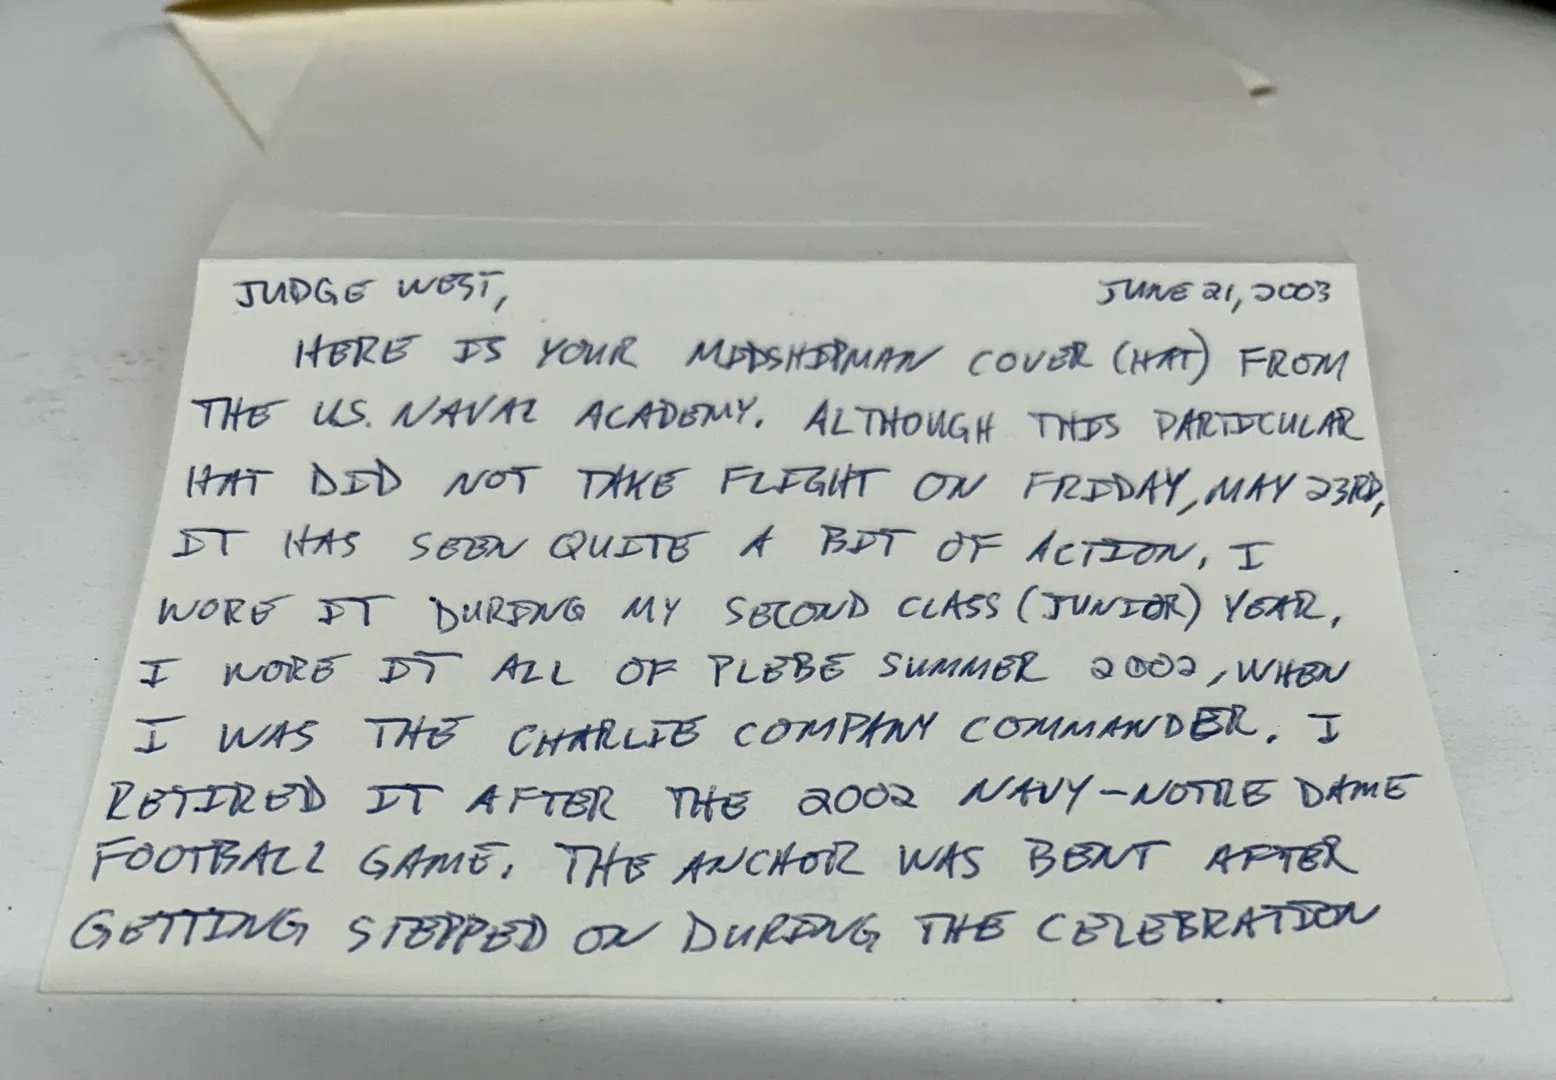 JUDGE WEST, JUNE 21, 2003
HERE IS YOUR MIDSHIPMAN COVER (HAT) FROM
THE U.S. NAVAL ACADEMY. ALTHOUGH THIS PARTICULAR
HAT DID NOT TAKE FLIGHT ON FRIDAY, MAY 23RD,
IT HAS SEEN QUITE A BIT OF ACTION. I
WORE IT DURING MY SECOND CLASS (JUNIOR) YEAR,
I WORE IT ALL OF PLEBE SUMMER 2002, WHEN
I WAS THE CHARLIE COMPANY COMMANDER. I
RETIRED IT AFTER THE 2002 NAVY-NOTRE DAME
FOOTBALL GAME. THE ANCHOR WAS BENT AFTER
GETTING STEPPED ON DURING THE CELEBRATION